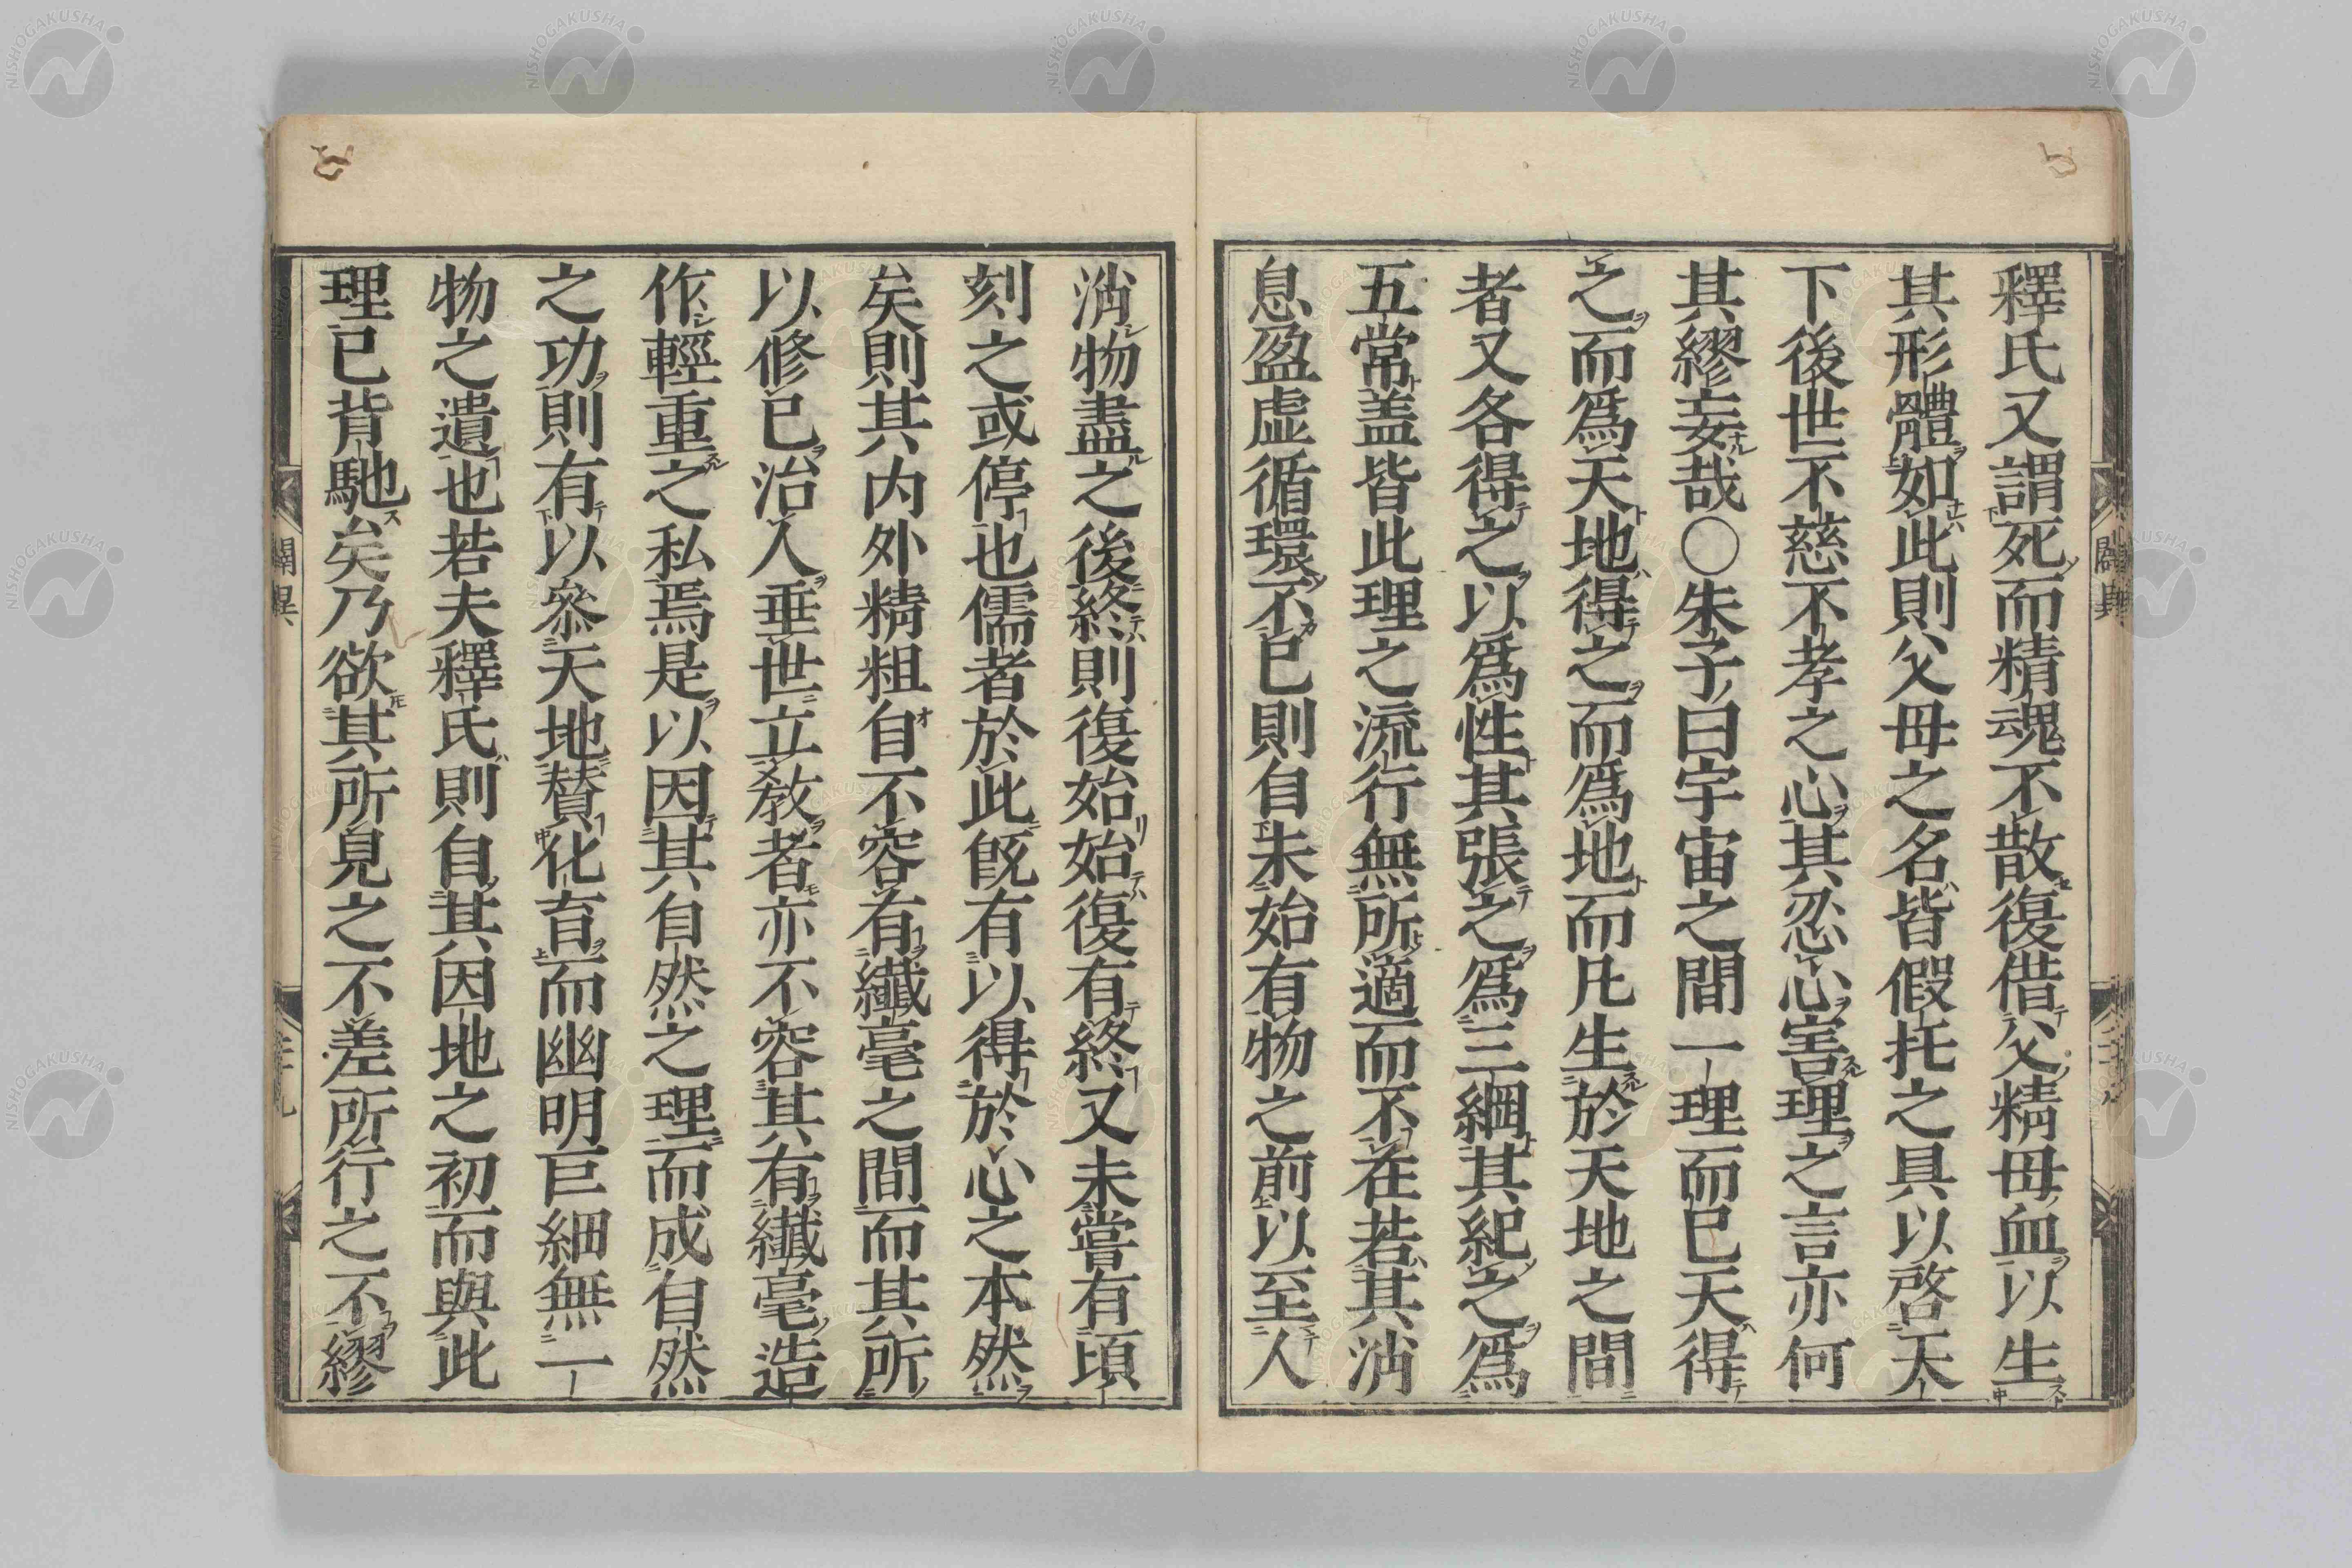 釋氏又謂死而精魂不散復借父精母血以生
其形體如此則父母之名皆假托之具以啓天
下後世不慈不孝之心其忍心害理之言亦何
其繆妄哉〇朱子曰宇宙之間一理而已天得
之而爲天地得之而爲地而凡生於天地之間
者又各得之以爲性其張之爲三綱其紀之爲
五常盖皆此理之流行無所適而不在若其消
息盈虚循環不已則自未始有物之前以至人
消物盡之後終則復始始復有終又未嘗有頃
刻之或停也儒者於此既有以得於心之本然
矣則其内外精粗自不容有纎毫之間而其所
以修已治人垂世立教者亦不容其有纎毫造
作輕重之私焉是以因其自然之理而成自然
之功則有以叅天地賛化育而幽明巨細無一
物之遺也若夫釋氏則自其因地之初而與此
理已背馳矣乃欲其所見之不差所行之不繆
闢異
闢異
NISHOGAKUSHA